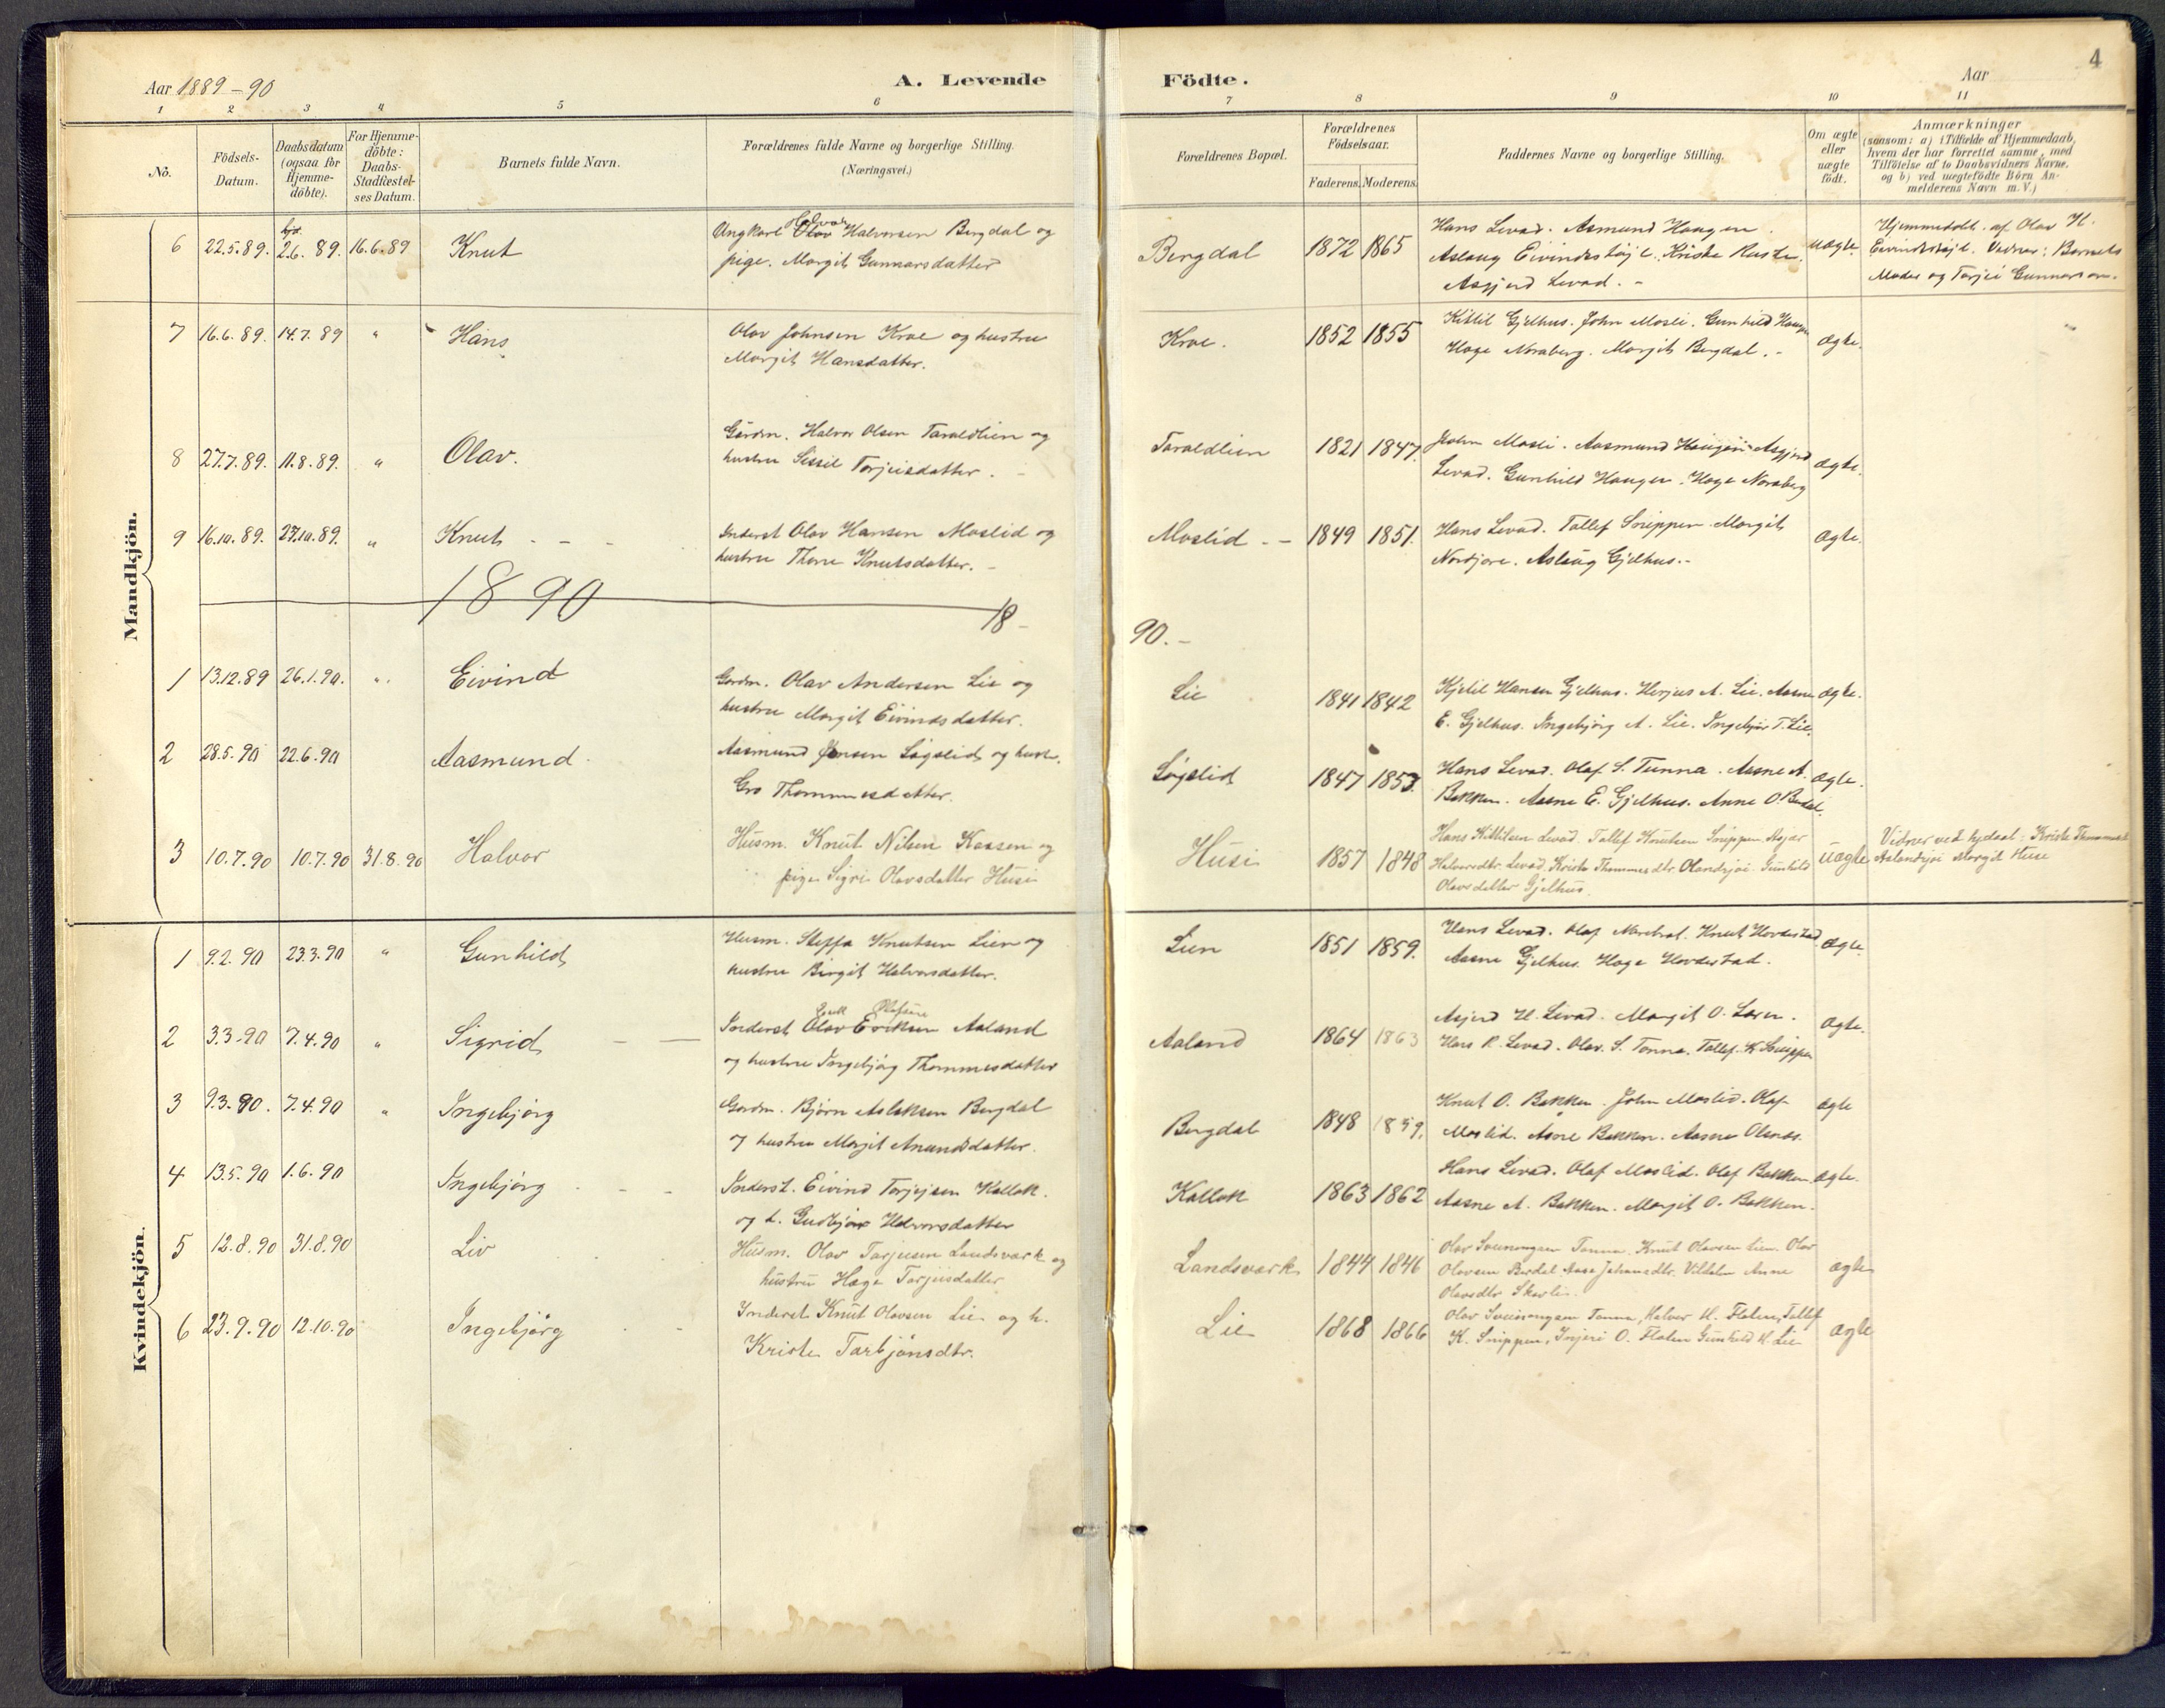 4
Aar 1889-90
A. Levende
Födte.
Aar
1 2 3 4 5 6
7 8 9 10 11
No.
Födsels-Datum.
Daabsdatum (ogsaa for Hjemmedöbte).
For Hjemmedöbte: Daabs-Stadfæstelses Datum.
Barnets fulde Navn.
Forældrenes fulde Navne og borgerlige Stilling. (Næringsvei.)
Forældrenes Bopæl.
Forældrenes Födselsaar.
Faderens. Moderens.
Faddernes Navne og borgerlige Stilling.
Om ægte eller uægte födt.
Anmærkninger
(saasom: a) i Tilfælde af Hjemmedaab, hvem der har forrettet samme, med Tilföielse af to Daabsvidners Navne, og b) ved uægtefödte Börn Anmelderens Navn m. V.)
Mandkjön.
6 22.5.89. hjd. 2.6.89. 16.6.89 Knut
Ungkarl Halvor Olav Halvorsen Bergdal og
pige. Margit Gunnarsdatter
Bergdal 1872 1865
Hans Levad. Asmund Haugen.
Aslaug Eivindstøjl. Kriste Ruste.
Asgjerd Levad.-
uægte.
Hjemmedøbt af Olav H.
Eivindstøjl. Vidner: Barnets
Moder og Tarjei Gunnarson.
7 16.6.89. 14.7.89 " Hans
Olav Johnsen Kroe og hustru
Margit Hansdatter.
Kroe. 1852 1855
Kittil Gjelhus. John Mosli. Gunhild Haugen
Hage Noraberg. Margit Bergdal.-
ægte. "
8 27.7.89. 11.8.89. " Olav.
Gårdm. Halvor Olsen Taraldlien og
hustru Sissil Torjeisdatter.
Taraldlien 1821 1847.
John Mosli. Aasmund Haugen. Asgjerd
Levad. Gunhild Haugen. Hage Noraberg
ægte.
9 16.10.89. 27.10.89. " Knut - - -
Inderst Olav Hansen Moslid og
hustru Thone Knutsdatter.-
Moslid.- 1849 1851.
Hans Levad. Tallef Sneppen. Margit
Nordjore. Aslaug Gjelhus.-
ægte.
1890
18-
90.-
1 13.12.89 26.1.90. " Eivind
Gårdm. Olav Andersen Lie og
hustru Margit Eivindsdatter.
Lie 1841 1842
Kjetil Hansen Gjelhus. Herjus A. Lie. Aasne
E. Gjelhus. Ingebjörg A. Lie. Ingebjør T. Lie.
ægte.
2 28.5.90 22.6.90 Aasmund.
Aasmund Jensen Løgslid og hustr.
Gro Thommesdatter.
Løgslid 1847 1853.
Hans Levad. Olaf S. Tunna. Aasne A.
Bakken. Aasne E. Gjelhus. Anne O.
ægte.
3 10.7.90 10.7.90 31.8.90 Halvor
Husm. Knut Nilsen Kassen og
pige Sigri Olavsdatter Husi
Husi 1857 1848
Hans Kittilsen Levad. Tallef Knutsen Sneppen. Asjær
Halvorsdtr. Levad. Kriste Thommesdtr. Olandsjøi. Gunhild
Olavsdatter Gjelhus.
uægte
Vidner ved hjdaab: Kriste
Margit Huse
Kvindekjön.
1 9.2.90 23.3.90 " Gunhild
Husm. Steffa Knutsen Lien og
hustru Birgit Halvorsdatter.
Lien 1851 1859.
Hans Levad. Olaf Knut Hovdestad
Aasne Gjelhus. Hage Hovdestad.
ægte.
2 3.3.90 7.4.90 " Sigrid - -
Inderst Olav Eriksen Aaland
og hustru Ingebjörg Thommesdatter
Aaland 1864 1863
Asjerd H. Levad. Margit O.
Hans K. Levad. Olav. S. Tonna. Tallef. K. Sneppen
ægte.
3 9.3.90. 7.4.90 " Ingebjörg
Gårdm. Bjørn Aslaksen Bergdal
og hustru Margit Anundsdatter.
Bergdal 1848 1859.
Knut O. Bakken. John Moslid. Olaf
Moslid. Asne Bakken. Aasne
ægte
4 13.5.90 1.6.90 Ingebjörg - - -
Inderst. Eivind Torjejsen Kallak.
og h. Gudbjør Halvorsdatter
Kallak 1863 1862
Hans Levad. Olaf Moslid. Olaf Bakken.
Aasne A. Bakken. Margit O. Bakken.
ægte.
5 12.8.90 31.8.90 Liv
Husm. Olav Tarjeisen Landsværk og
hustru Hæge Tarjeisdatter
Landsværk 1844 1846
Olav Sveinungsen Tonna. Knut Olavsen Lien. Olav
Olavsen Aase Johansdtr. Anne
Olavsdtr.
ægte
6 23.9.90 12.10.90 Ingebjørg -
Inderst Knut Olavsen Lie og h.
Kriste Tarbjønsdtr.
Lie 1868 1866
Olav Sveinungsen Tonna, Halvor H. Flaten, Tallef
K. Sneppen, O. Flaten Gunhild H. Lie
ægte